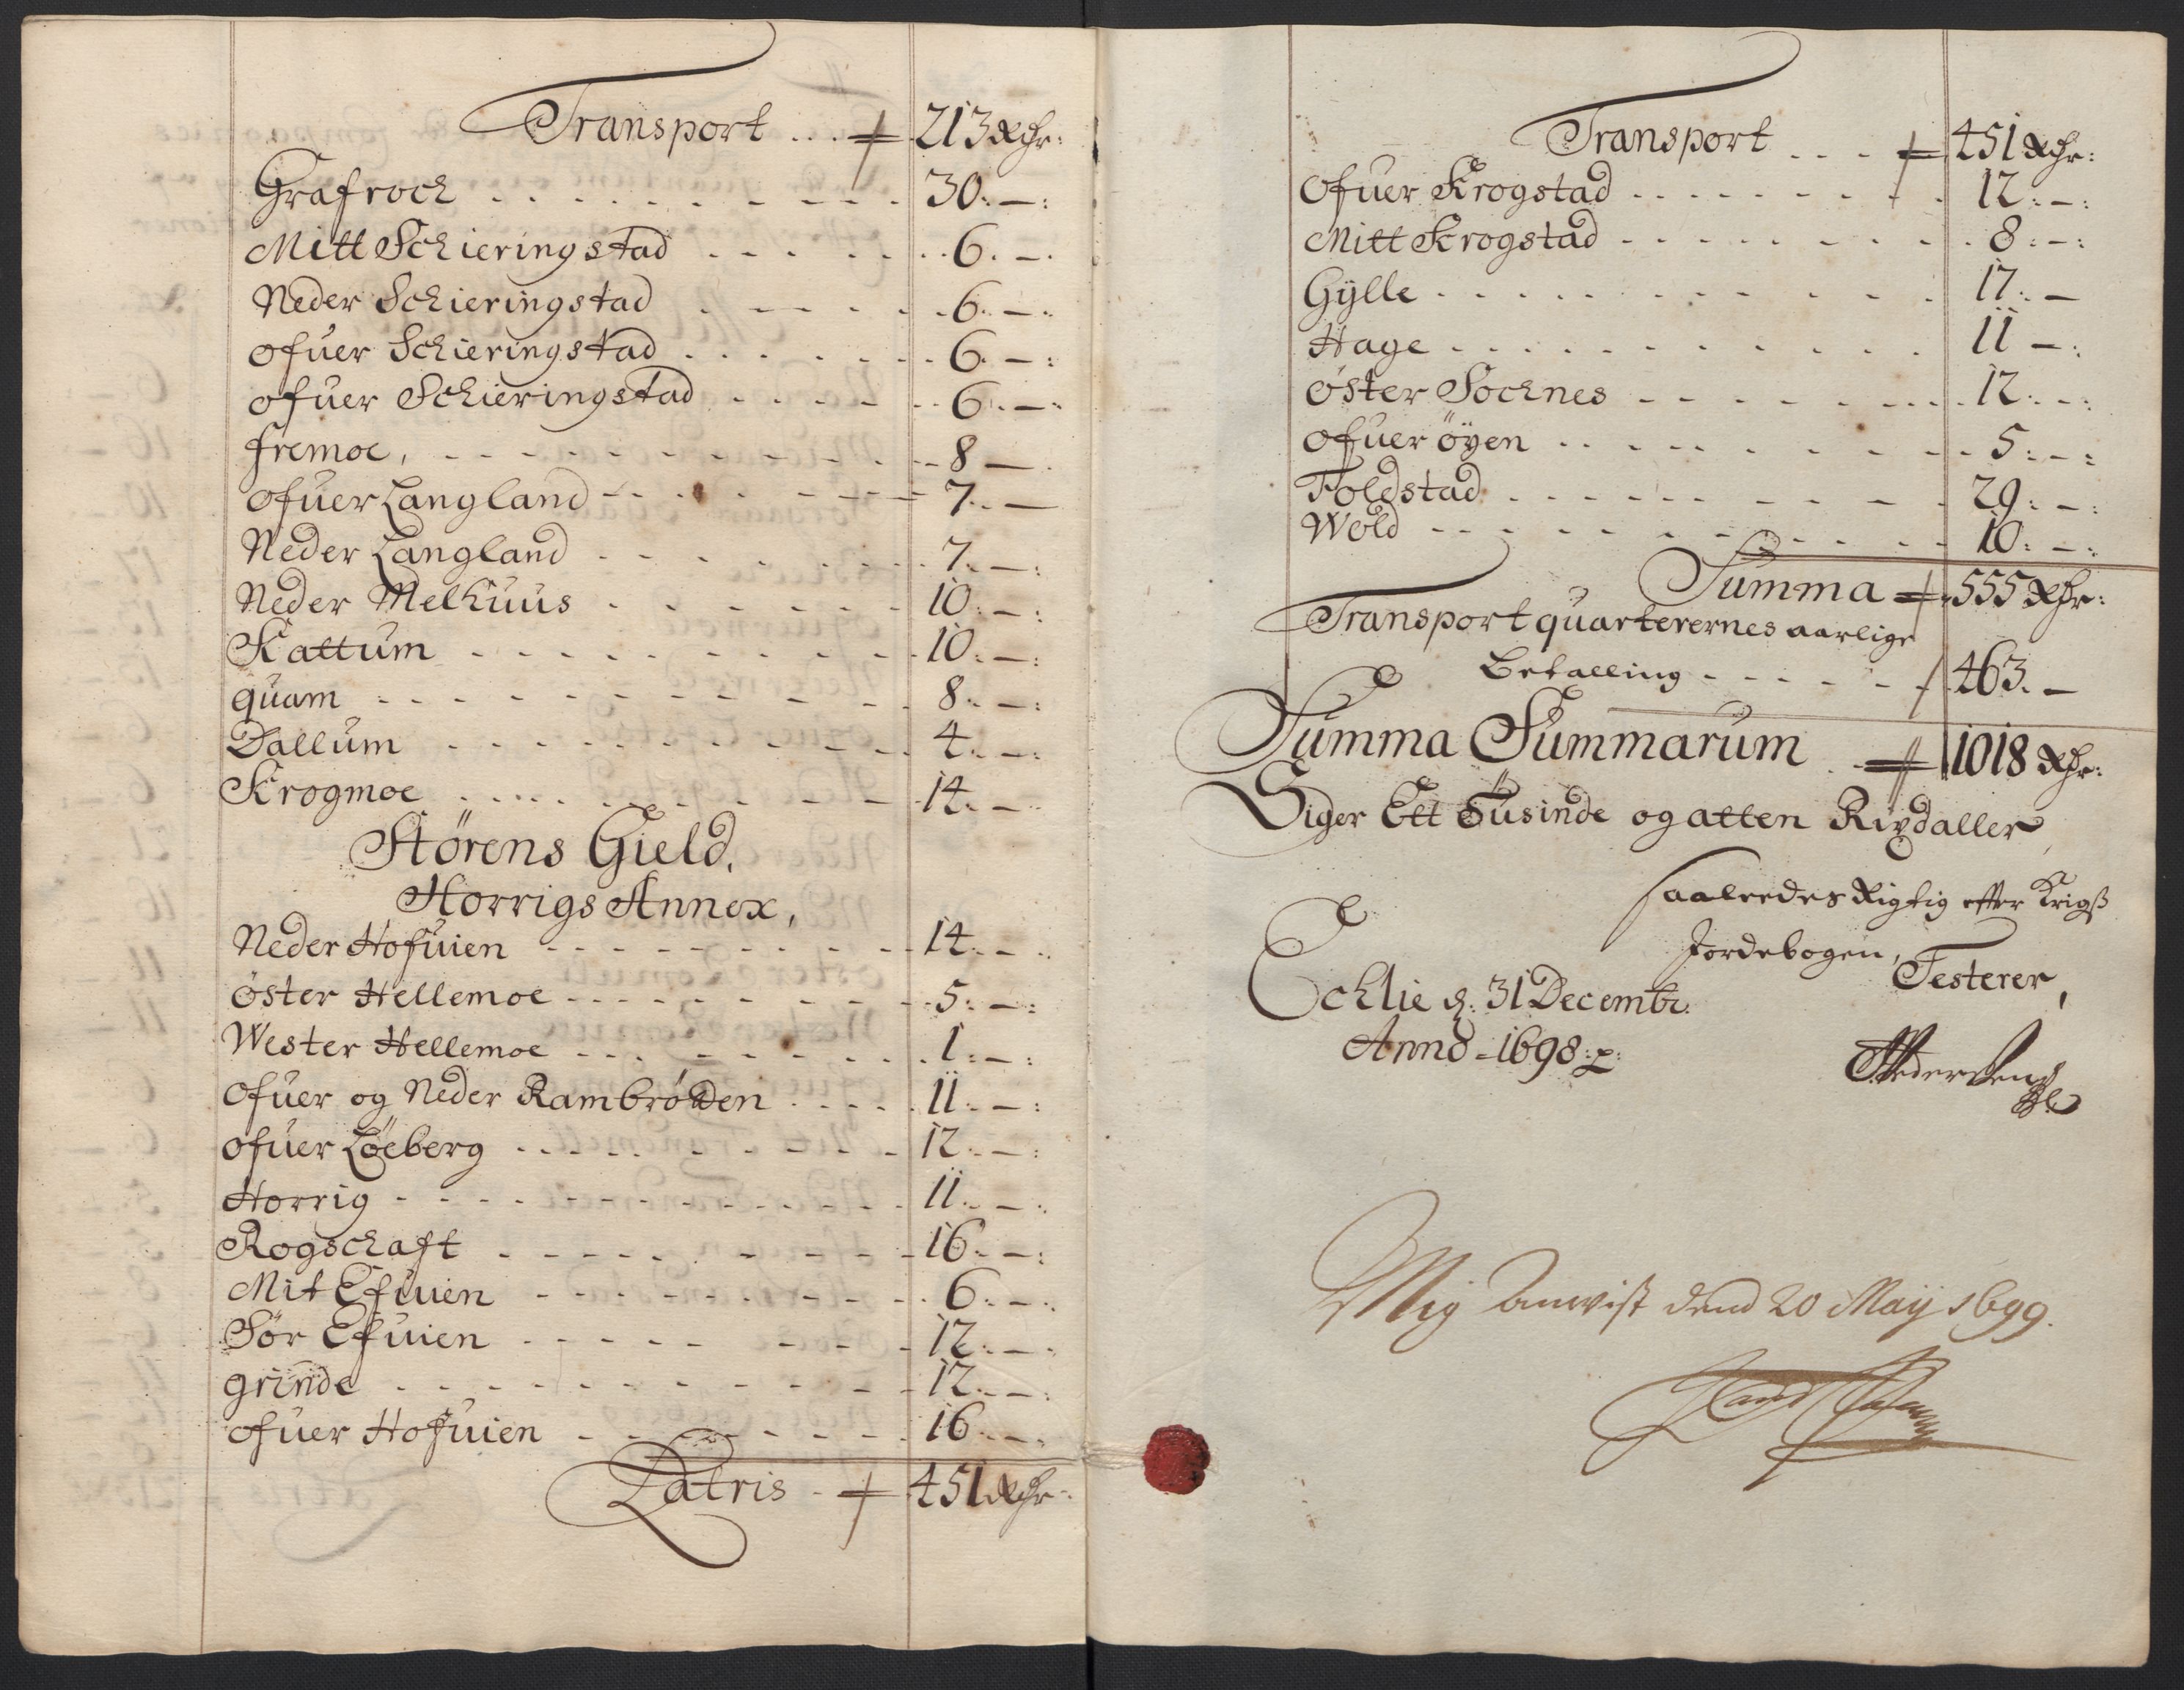 Transport ... 213 Rdr:
Grafrock 30. — :
Mitt Schieringstad 6. —.
Neder Schieringstad 6. — :
Ofuer Schieringstad 6. — :
Ofuer Schieringstad 6. — :
fremoe, 8 — .
Ofuer Langland 7. —
Neder Langland 7. — :
Neder Melhuus 10: — :
Kattum 10: — :
quam 8: — :
Dallum 4. — :
Krogmoe 14. —
Störens Gield,
Horrigs Annex,
Neder Hofuien 14. — .
öster Hellemoe 5: — :
Wester Hellemoe 1: — :
Ofuer og Neder Rambröden 11: — :
Ofuer Löeberg 12: — :
Horrig 11. — .
Rogschaft 16. — :
Mit Efuien 6. — .
Sör Efuien 12. — .
grinde 12. — .
Ofuer Hofuien 16. — .
Latris 451 Rdr
Transport 451 Rdr:
Ofuer Krogstad 12: — :
Mitt Krogstad 8: — :
Gÿlle 17: —
Hage 11 — :
öster Socknes 12. — :
Ofuer öyen 5: — :
Foldstad 29: — :
Wold 10: — :
Summa 555 Rdr:
Transport quarterernes aarlige
Betalling 463. —
Summa Summarum 1018 Rdr:
Siger Ett Tüsinde og atten Rixdaller
saaledes Rigtig efter Krigs
Jordebogen,
Testerer,
Echlie d: 31 Decembr:
Anno 1698:
Mig Anwist dend 20 Maÿ 1699.